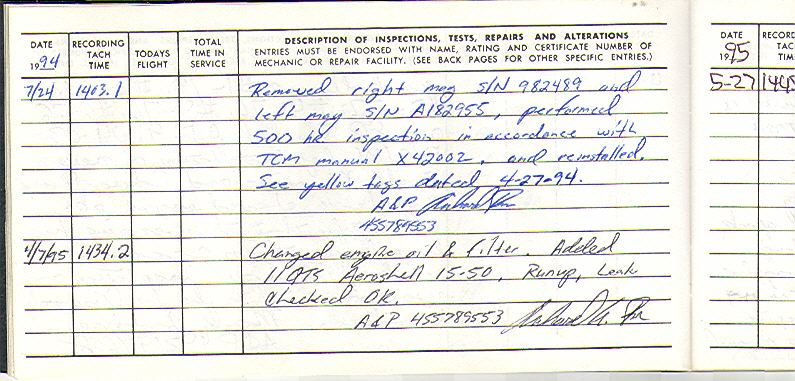 DATE
1994
RECORDING
TACH
TIME
TODAYS
FLIGHT
TOTAL
TIME IN
SERVICE
DESCRIPTION OF INSPECTIONS, TESTS, REPAIRS AND ALTERATIONS
ENTRIES MUST BE ENDORSED WITH NAME, RATING AND CERTIFICATE NUMBER OF
MECHANIC OR REPAIR FACILITY. (SEE BACK PAGES FOR OTHER SPECIFIC ENTRIES.)
7/24 1403.1 Removed right mag S/N 982489 and
left mag S/N A182955, performed
500 hr. inspection in accordance with
TCM manual X42002, and reinstalled.
See yellow tags dated 4-27-94.
A&P
455789553
4/7/95 1434.2 Changed engine oil & filter. Added
11 QTS Aeroshell 15-50, Runup, Leak
Checked OK.
A&P 455789553
DATE
1995
RECORD
TACH
TIME
5-27 1445